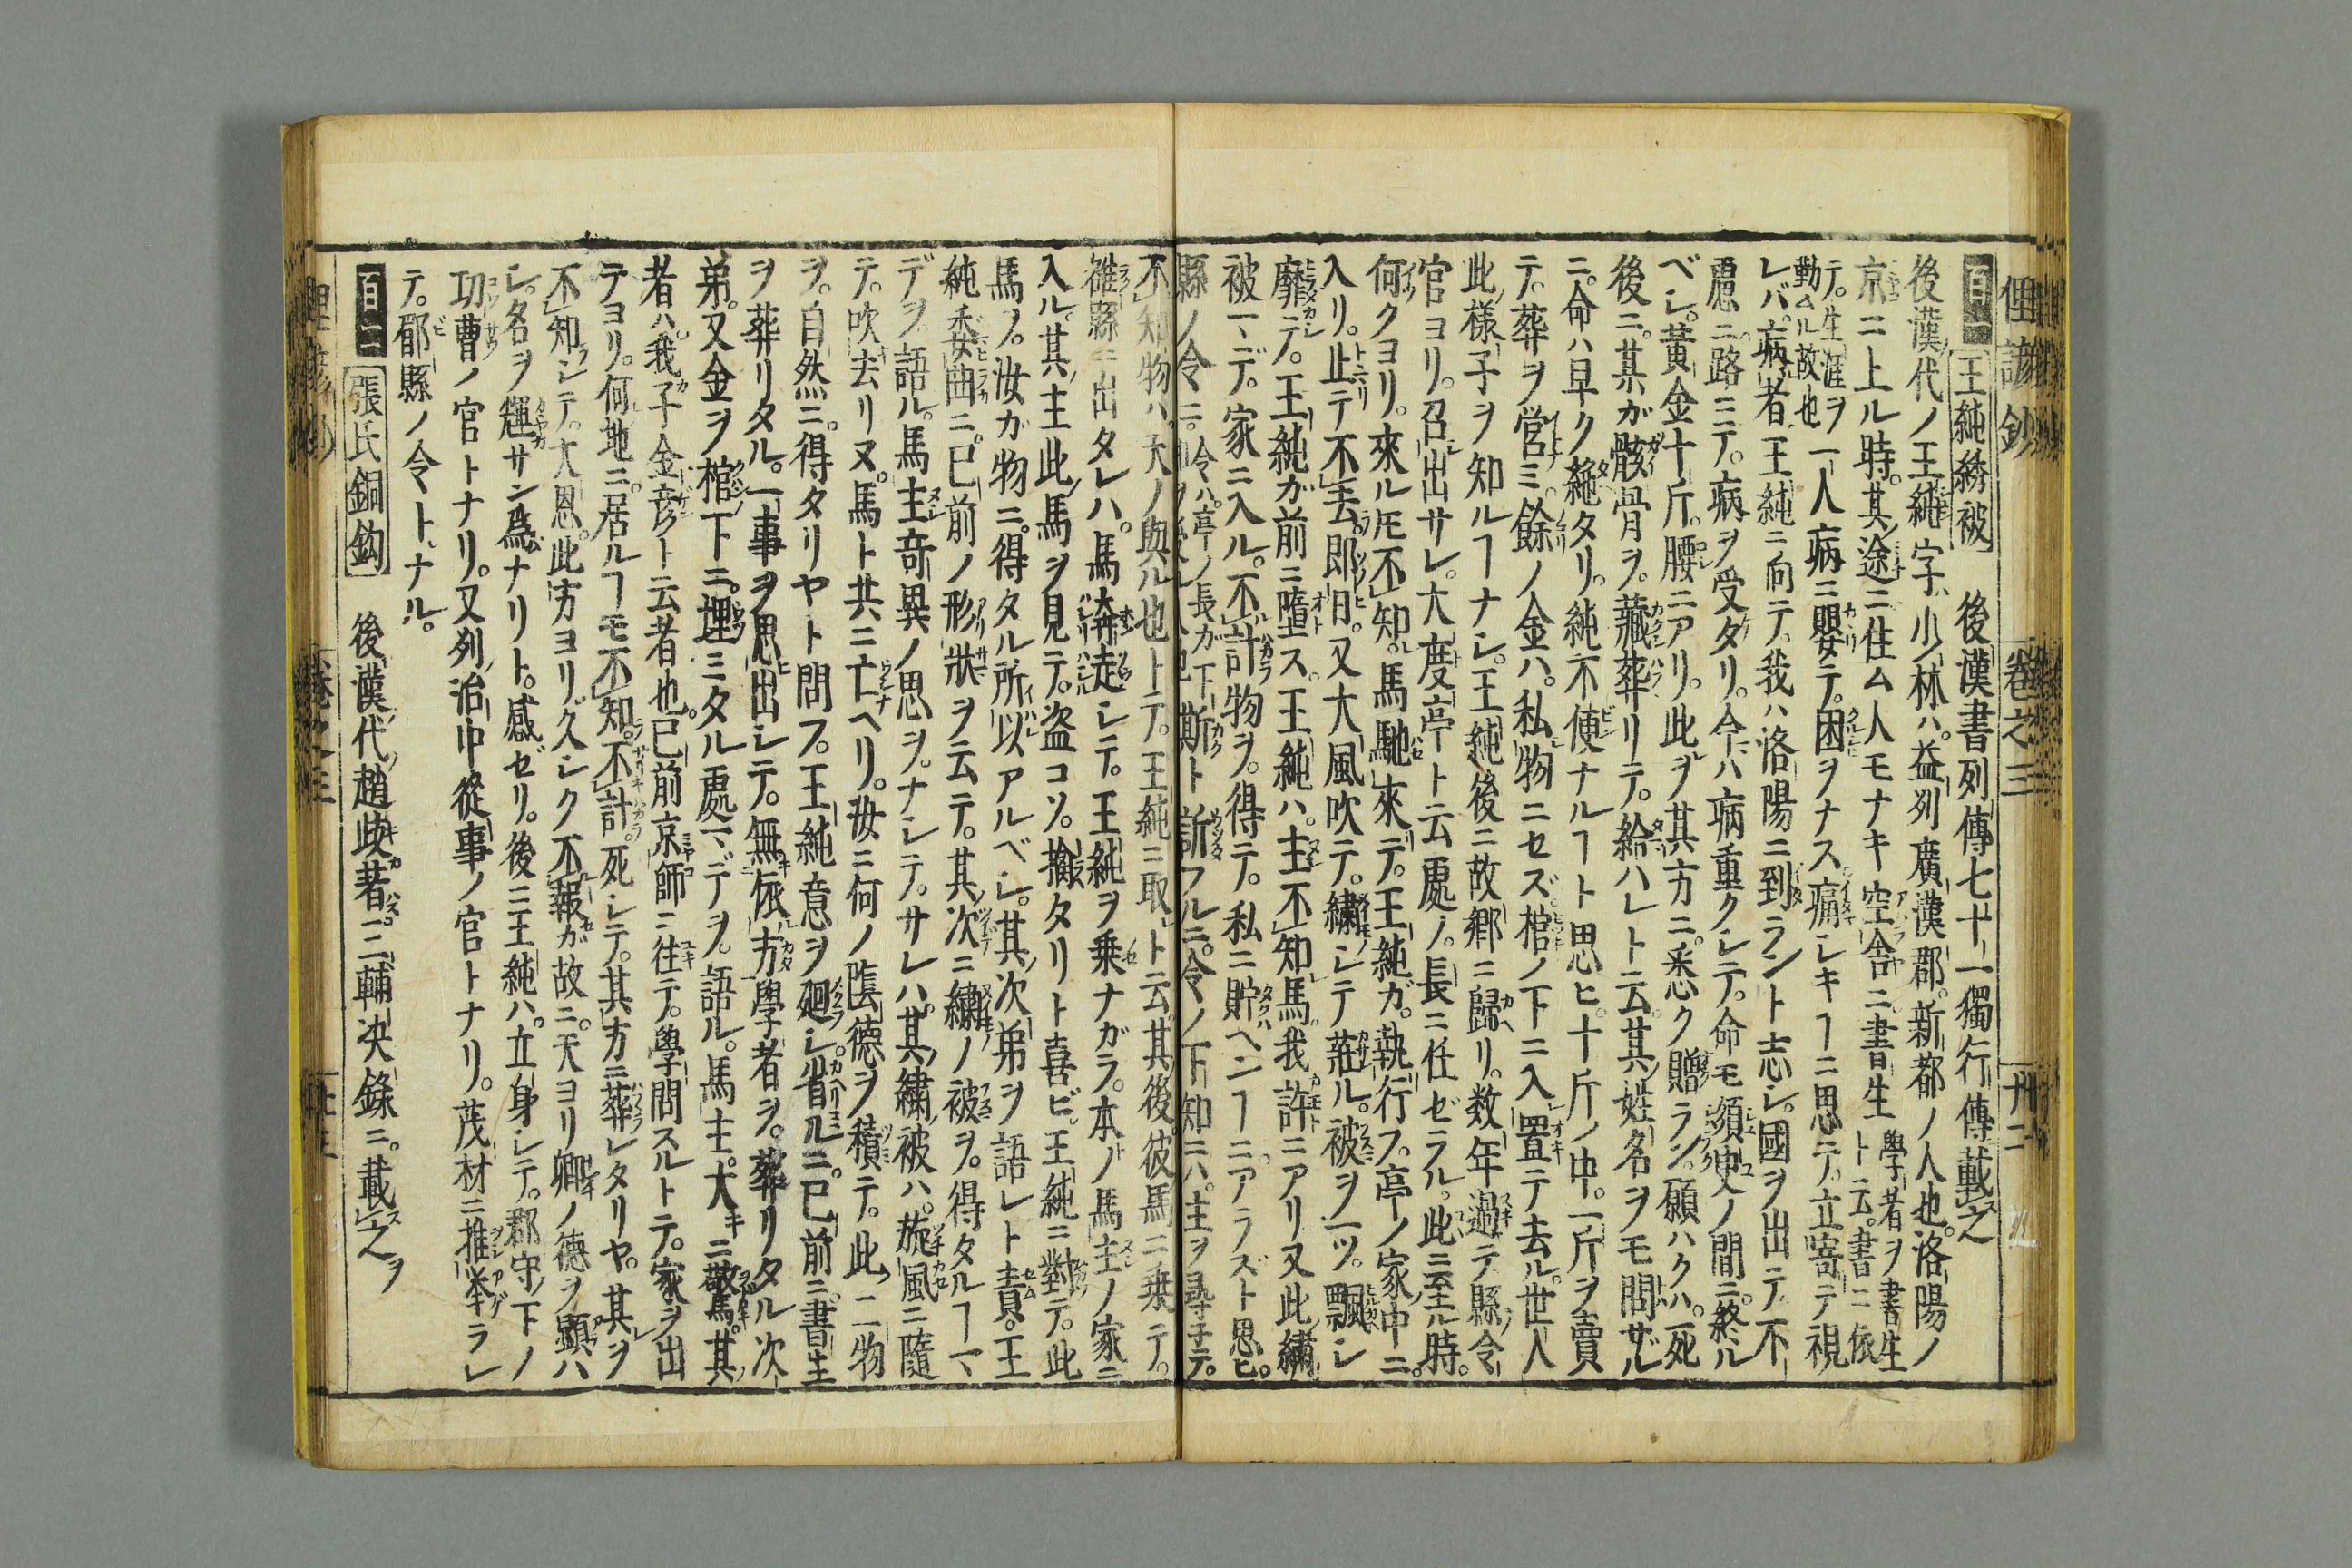 俚諺鈔 卷之三 卅二
百一 王純綉被 後漢書列傳七十一獨行傳載之
後漢ノ代ノ王純字ハ少林ハ。益刕廣漢郡。新都ノ人也。洛陽ノ
京ニ上ル時。其途ニ住ム人モナキ空舎ニ書生 學者ヲ書生ト云。書ニ依
テ。生涯ヲ勤ムル故也 一人病ニ嬰テ。困ヲナス。痛シキヿニ思テ。立寄テ視
レバ。病者王純ニ向テ。我ハ洛陽ニ到ラント志シ。國ヲ出テ。不
慮ニ路ニテ。病ヲ受タリ。今ハ病重クシテ。命モ須臾ノ間ニ終ル
ベシ。黄金十斤。腰ニアリ。此ヲ其方ニ。悉ク贈ラン。願ハクハ。死
後ニ。某ガ骸骨ヲ。藏葬リテ。給ハレト云。其姓名ヲモ問ザル
ニ。命ハ早ク絶タリ。純不便ナルヿト思ヒ。十斤ノ中。一斤ヲ賣
テ。葬ヲ営ミ。餘ノ金ハ。私物ニセズ。棺ノ下ニ入置テ去ル。世人
此様子ヲ知ルヿナシ。王純後ニ故郷ニ歸リ。数年過テ縣令
官ヨリ。召出サレ。大度亭ト云處ノ。長ニ任ゼラル。此ニ至ル時。
何クヨリ。來ルトモ不知。馬馳來テ。王純ガ。執行フ。亭ノ家中ニ。
入リ。止テ不去。即日。又大風吹テ。繡シテ莊ル。被ヲ一ツ。飄シ
靡テ。王純ガ前ニ墮ス。王純ハ。主不知馬。我許ニアリ又此繡
被マデ。家ニ入ル。不計物ヲ。得テ。私ニ貯ヘンヿニアラズト思ヒ。
縣ノ令ニ。斯ト訢フルニ。令ノ下知ニハ。主ヲ尋子テ。
不知物ハ。天ノ與ル也トテ。王純ニ取ト云。其後彼馬ニ乗テ。
雒縣ニ出タレハ。馬奔走シテ。王純ヲ乗ナガラ。本ノ馬主ノ家ニ
入ル。其主此馬ヲ見テ。盗コソ。搇タリト喜ビ。王純ニ對テ。此
馬ヲ。汝ガ物ニ。得タル所以アルベシ。其次弟ヲ語レト責。王
純委曲ニ。已前ノ形狀ヲ云テ。其次ニ繡ノ被ヲ。得タルヿマ
デヲ。語ル。馬主奇異ノ思ヲ。ナシテ。サレハ。其繡被ハ。旋風ニ隨
テ。吹去リヌ。馬ト共ニ亡ヘリ。汝ニ何ノ陰徳ヲ積テ。此二物
ヲ。自然ニ。得タリヤト問フ。王純意ヲ廻シ。省ルニ。已前ニ。書生
ヲ葬リタル。一事ヲ思出シテ。無依方學者ヲ。葬リタル次
弟。又金ヲ棺下ニ。埋ミタル處マデヲ。語ル。馬主。大キニ驚。其
者ハ我子金彦ト云者也。已前京師ニ往テ。學問スルトテ。家ヲ出
テヨリ。何地ニ。居ルヿモ不知。不計。死シテ。其方ニ葬レタリヤ。其ヲ
不知シテ。大恩。此方ヨリ。久シク不報ガ故ニ。天ヨリ卿ノ徳ヲ顕ハ
シ。名ヲ輝サン爲ナリト。感ゼリ。後ニ王純ハ。立身シテ。郡守下ノ
功曹ノ官トナリ。又刕治中從事ノ官トナリ。茂材ニ推挙ラレ
テ。郿縣ノ令ト。ナル。
百二 張氏銅鈎 後漢ノ代ノ趙歧ガ著ハス。三輔决錄ニ。載之ヲ